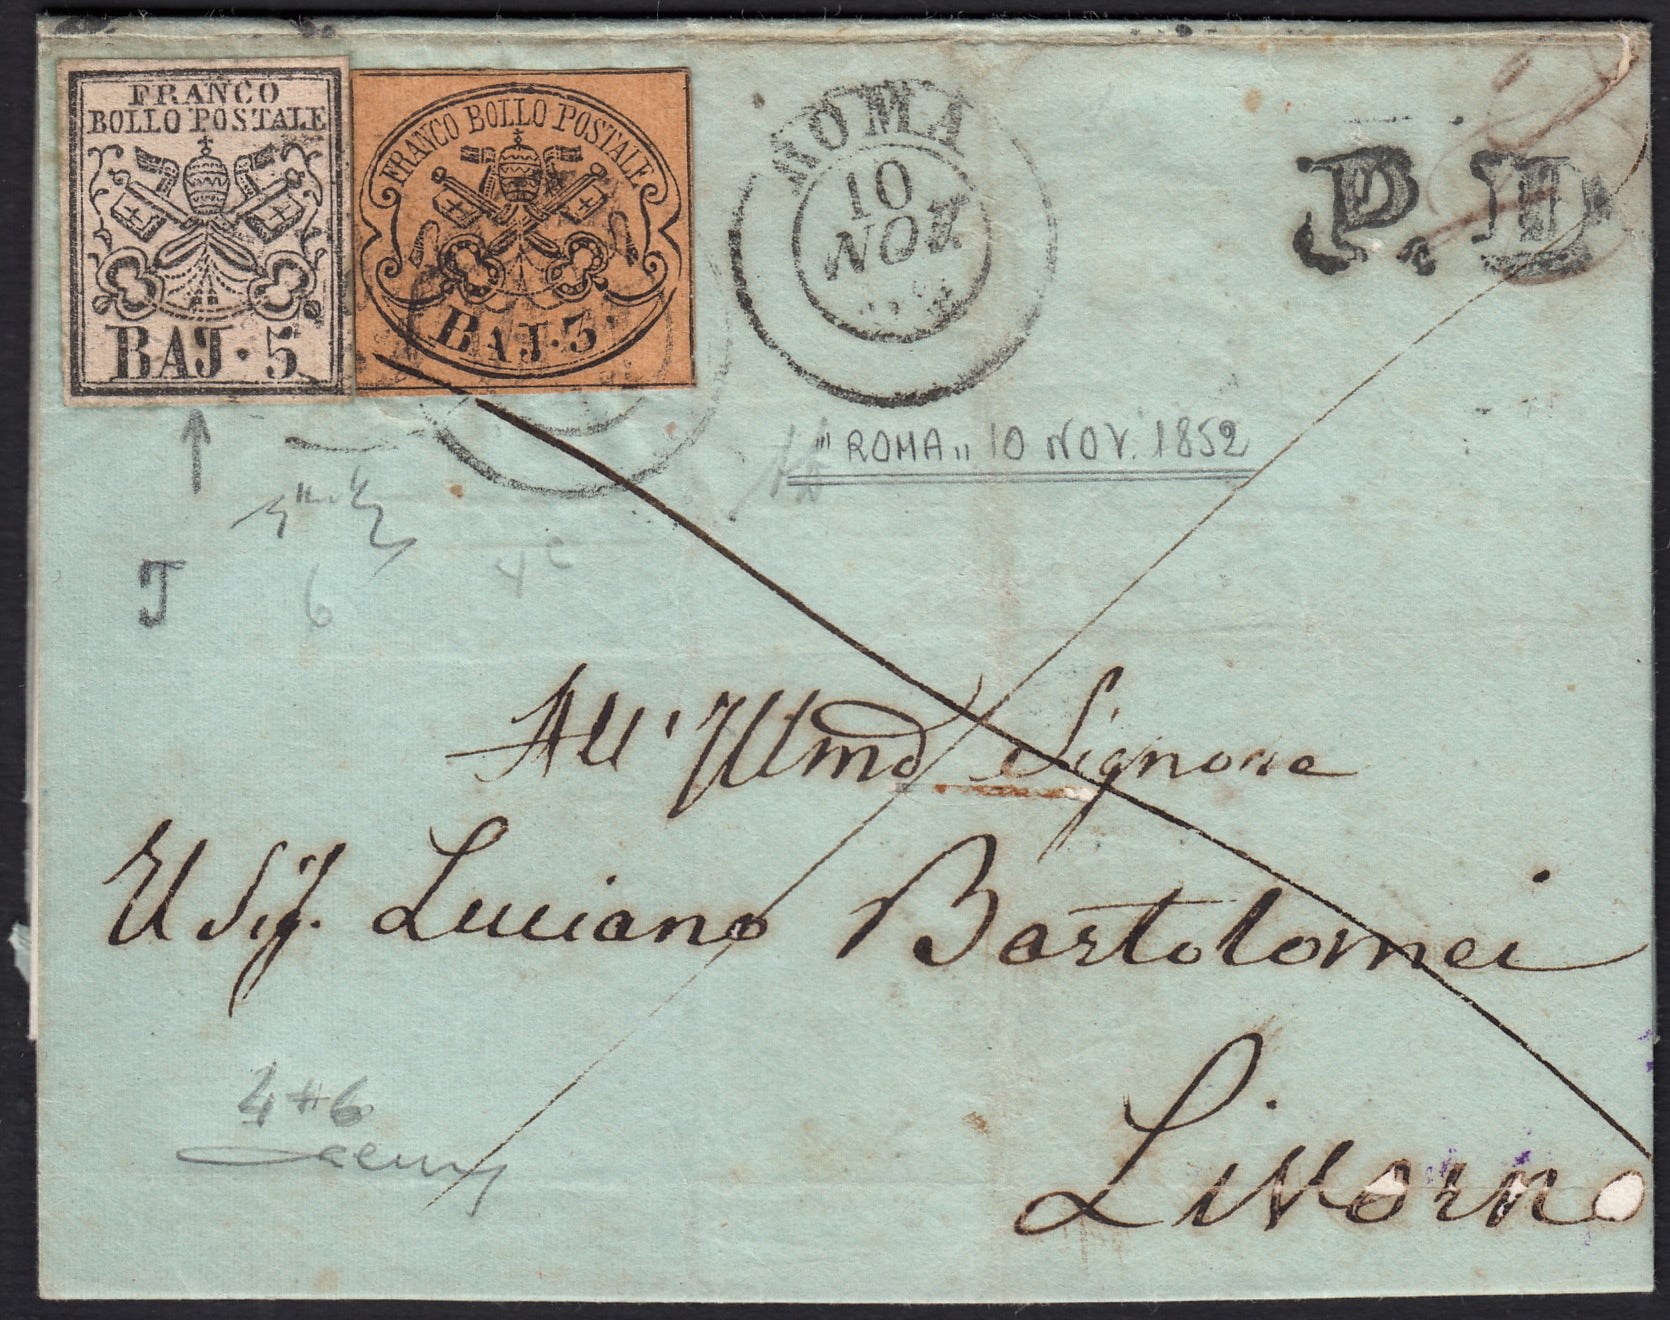 FRANCO
BOLLO POSTALE
BAJ. 5
FRANCO BOLLO POSTALE
BAJ. 3.
ROMA
10
NOV
P. D.
"ROMA" 10 NOV. 1852
J
6
4c
All'Illmo Signore
Il Sig. Luciano Bartolomei
Livorno
4+6